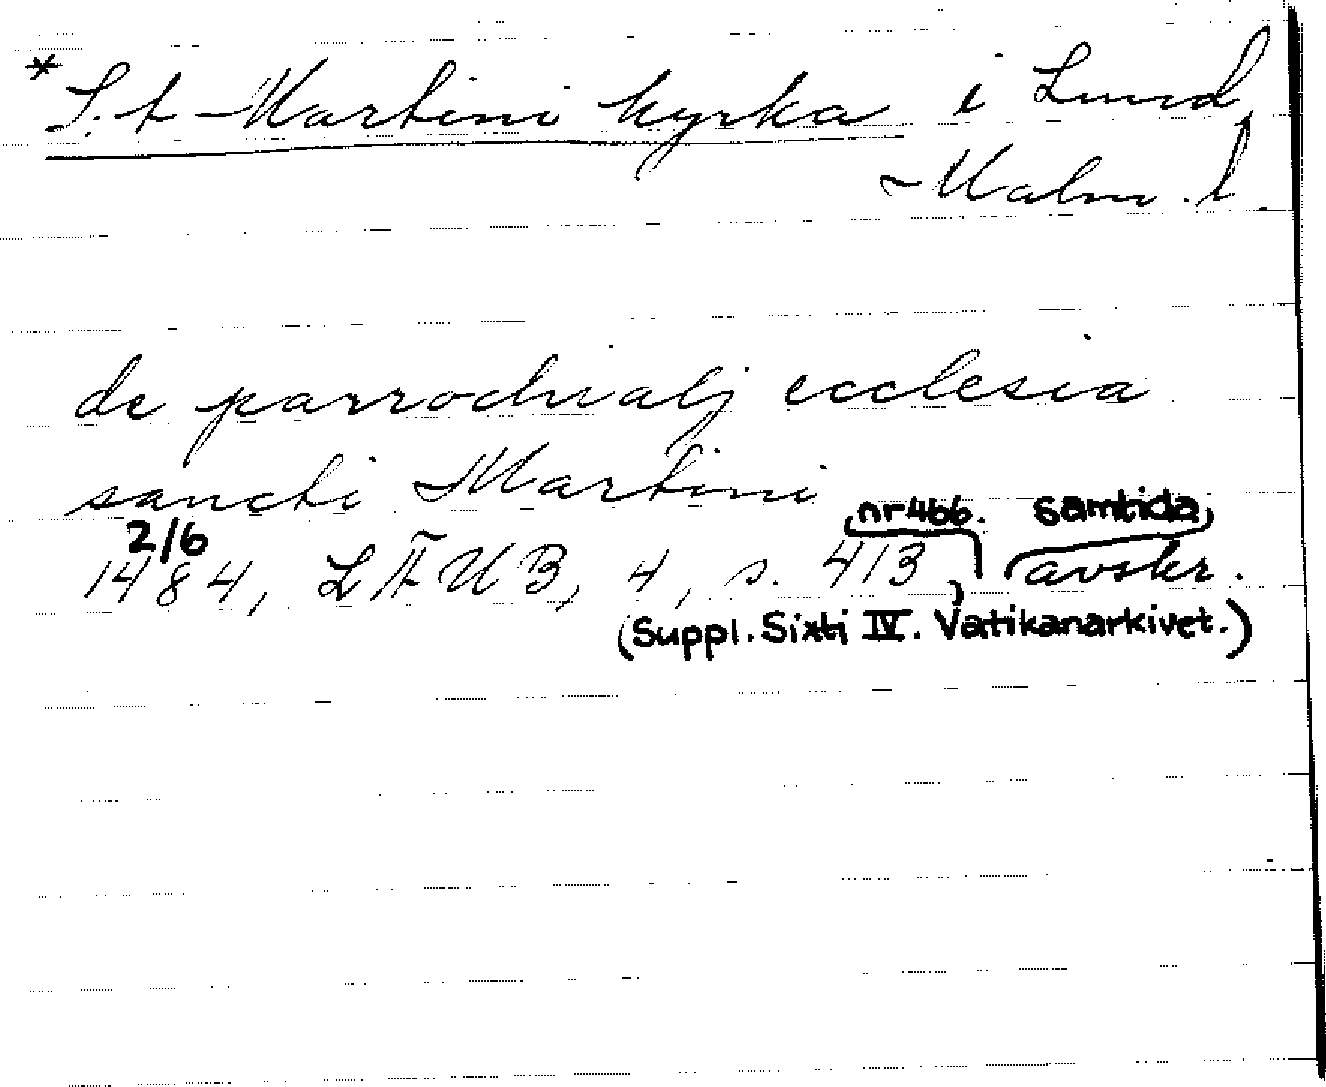 * S:t Martini kyrka i Lund,
Malm. l.
de parrochialj ecclesia
sancti Martini
2/6 nr 466. samtida
1484, LÄUB, 4, s. 413, avskr.
(Suppl. Sixti IV. Vatikanarkivet.)